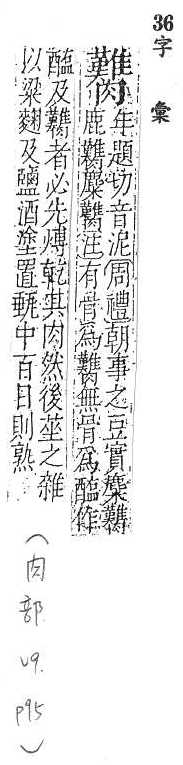 36
字彙
𦠆年題切音泥周禮朝事之豆實麋臡
鹿臡麋臡注有骨為臡無骨為醢作
醢及臡者必先膊乾其肉然後莝之雜
以粱麴及鹽酒塗置甀中百日則熟
(肉部 v9. p95)